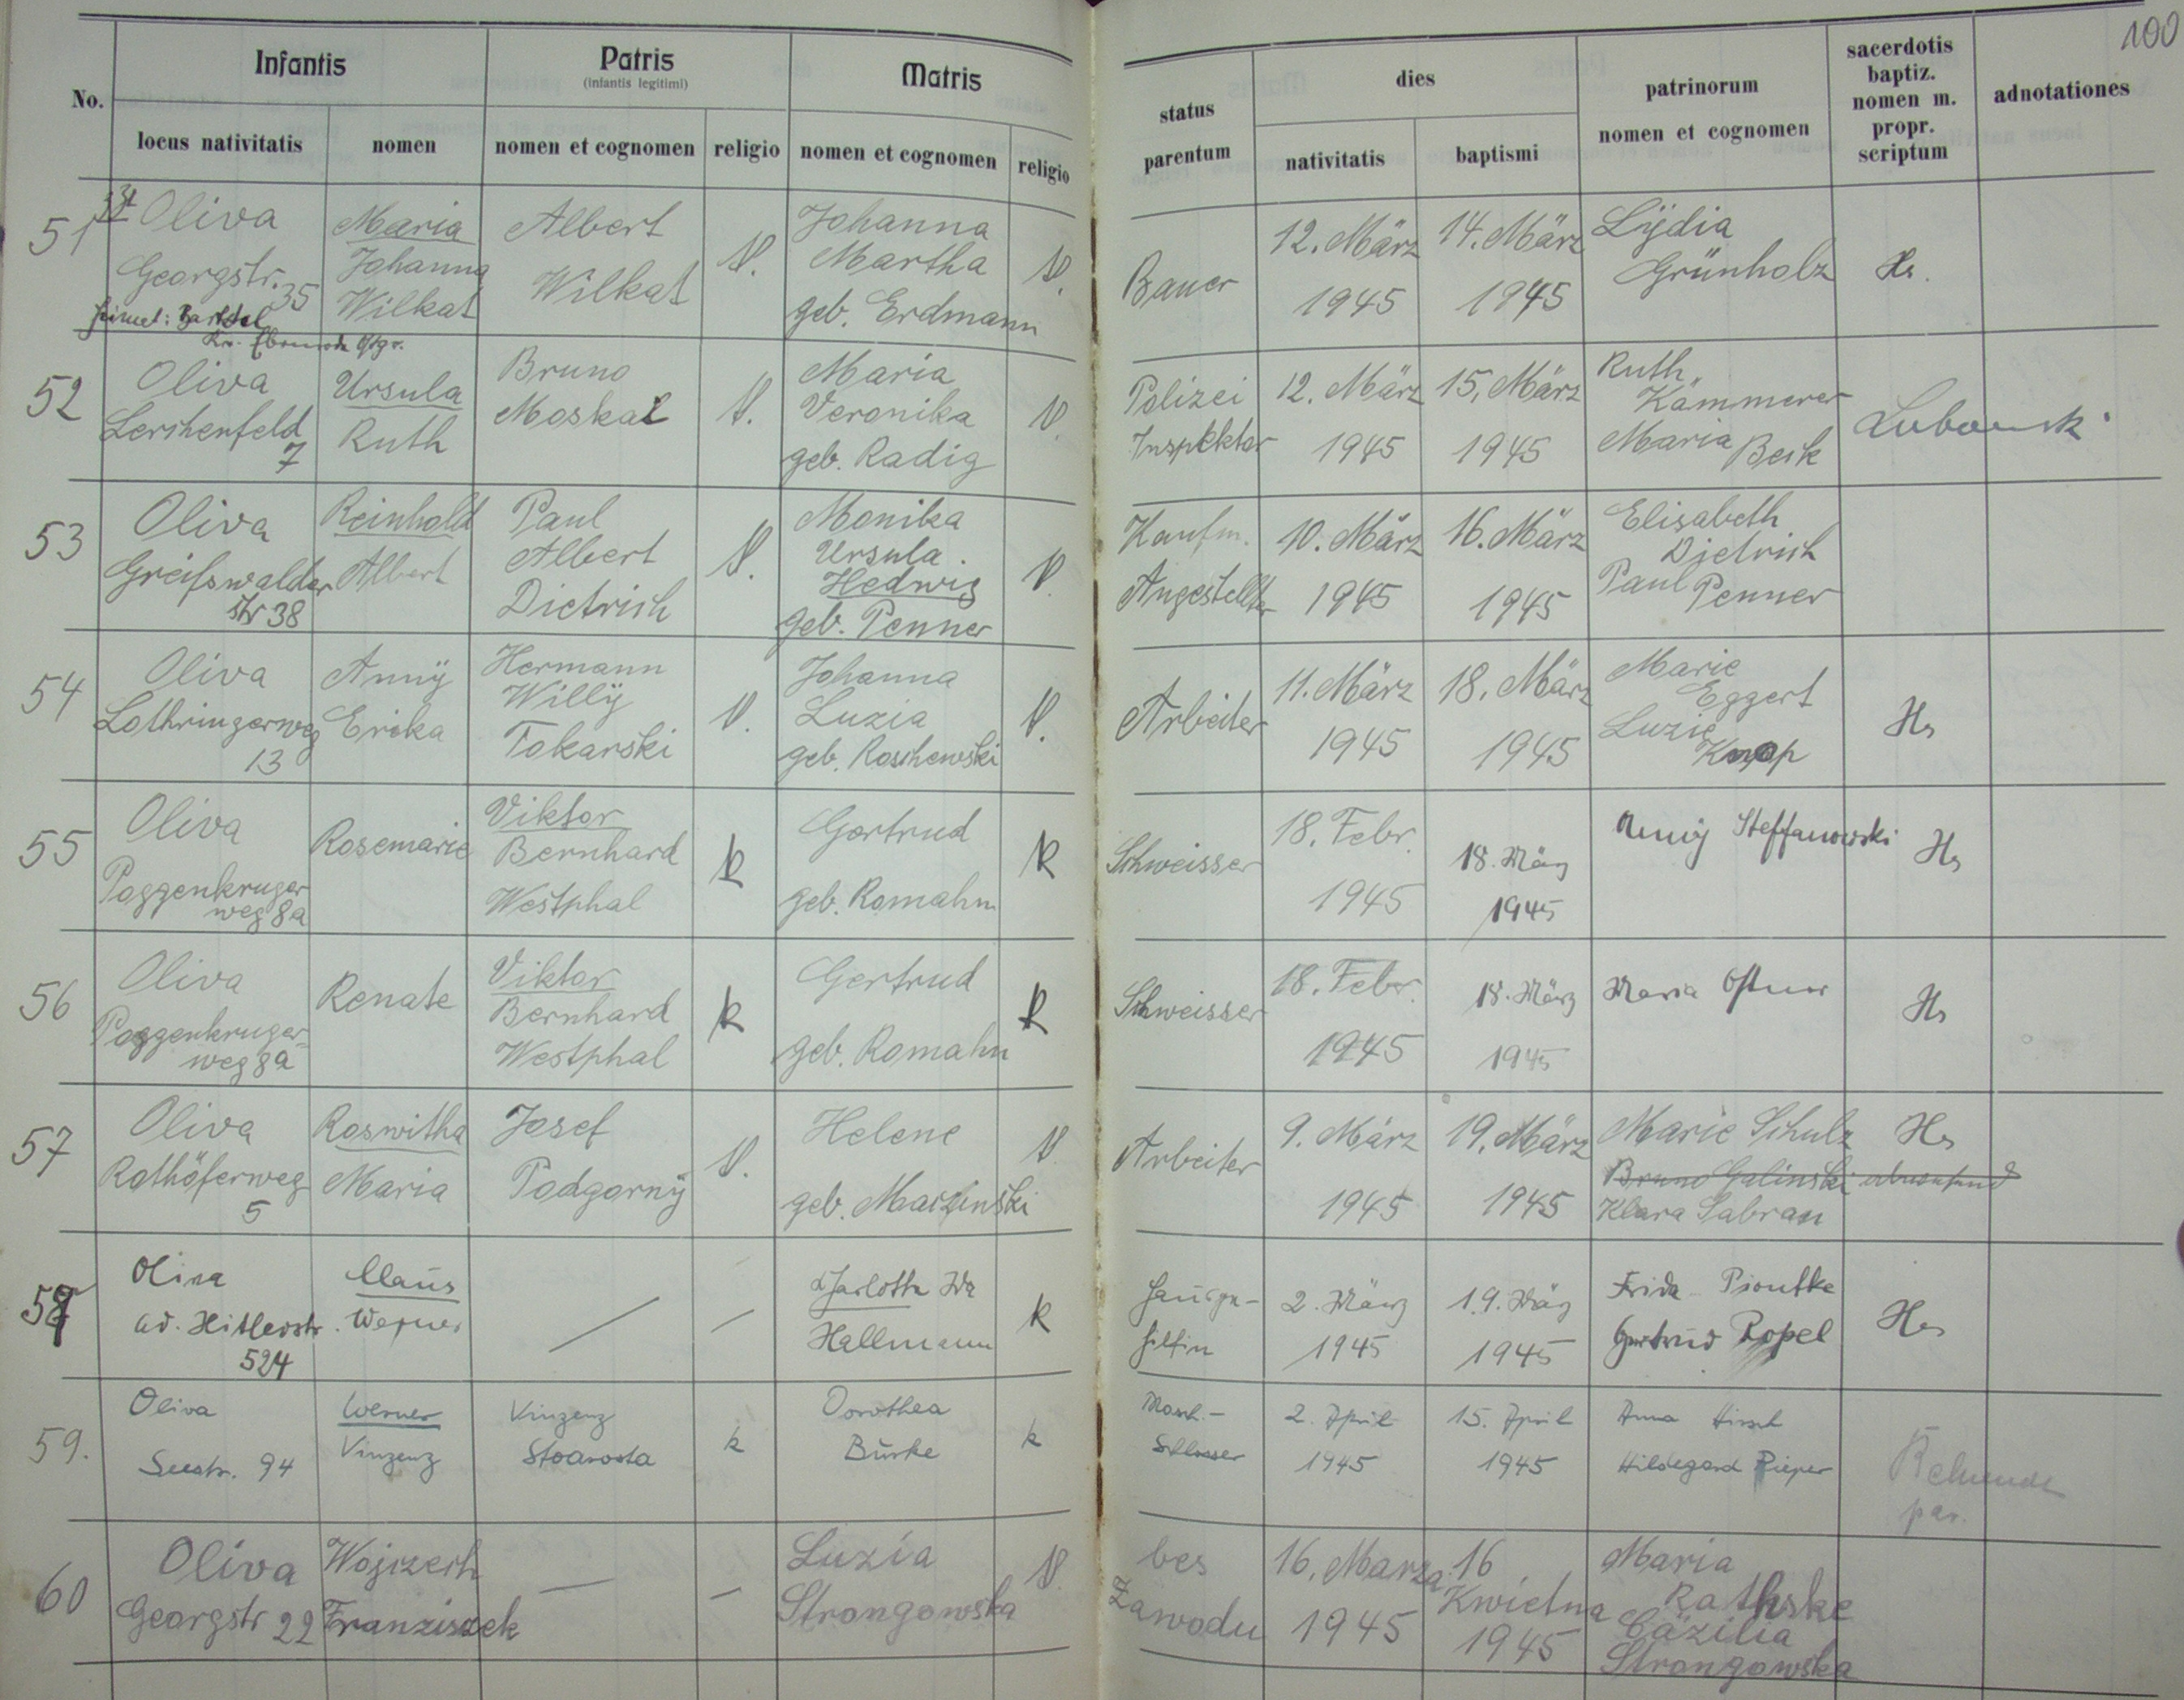 100
No.
Infantis
locus nativitatis
nomen
Patris
(infantis legitimi)
nomen et cognomen
religio
Matris
nomen et cognomen
religio
status
parentum
dies
nativitatis
baptismi
patrinorum
nomen et cognomen
sacerdotis
baptiz.
nomen m.
propr.
scriptum
adnotationes
51
Oliva
Georgstr. 35
Maria
Johanna
Wilkat
Albert
Wilkat
Johanna
Martha
geb. Erdmann
Bauer
12. März
1945
14. März
1945
Lÿdia
Grünholz
Hs.
52
Oliva
Lerchenfeld
7
Ursula
Ruth
Bruno
Moskal
Maria
Veronika
geb. Radig
Polizei
Inspektor
12. März
1945
15. März
1945
Ruth
Kämmerer
Maria Beck
53
Oliva
Greifswalder
Str 38
Reinhold
Albert
Paul
Albert
Dietrich
Monika
Ursula
Hedwig
geb. Penner
Kaufm.
Angestellter
10. März
1945
16. März
1945
Elisabeth
Dietrich
Paul Penner
54
Oliva
Lothringerweg
13
Annÿ
Erika
Hermann
Willÿ
Tokarski
Johanna
Luzia
geb. Roschewski
Arbeiter
11. März
1945
18. März
1945
Marie
Eggert
Luzie
Knop
Hs
55
Oliva
Poggenkruger
weg 8a
Rosemarie
Viktor
Bernhard
Westphal
k
Gertrud
geb. Romahn
k
Schweisser
18. Febr.
1945
18. März
1945
Steffanowski
Hs
56
Oliva
Poggenkruger-
weg 8a
Renate
Viktor
Bernhard
Westphal
k
Gertrud
geb. Romahn
k
Schweisser
18. Febr.
1945
18. März
1945
Maria
Hs
57
Oliva
Rathöferweg
5
Roswitha
Maria
Josef
Podgornÿ
Helene
geb. Marzinski
Arbeiter
9. März
1945
19. März
1945
Marie Schulz
Bruno Galinski
Klara Sabran
Hs
58
Oliva
Ad. Hitlerstr.
524
Claus
Werner
Charlotte Ida
Hallmann
k
Hausge-
hilfin
2. März
1945
19. März
1945
Frida Piontke
Gertrud Popel
Hs
59.
Oliva
Seestr. 94
Werner
Vinzenz
Vinzenz
k
Dorothea
Burke
k
Masch.-
Schlosser
2. April
1945
15. April
1945
Anna Hirsch
Hildegard Pieper
par.
60
Oliva
Georgstr 22
Wojzech
Franziszek
Luzia
Strongowska
bes
Zawodu
16. Marza
1945
16
Kwietna
1945
Maria
Rathske
Cäzilia
Strongowska